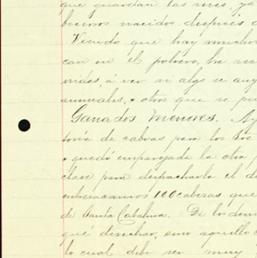 que guardan las reses ya
becerros nacidos después d
Viendo que hay muchos
can en el potrero, he m
nidas, á ver si algo se au
animales, ú otros que se pu
Ganados menores. Ay
toria de cabras para los Bo
y quedó emparejada la otra p
clase para despacharla el d
entresacamos 100 cabras que
de Santa Catalina. De lo dem
qué desechar, sino aquello d
lo cual debe ser muy